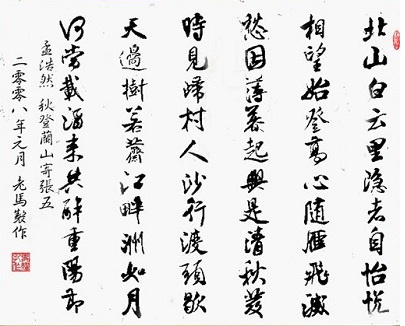 北山白云里隐者自怡悦
相望始登高心随雁飛滅
愁因薄暮起興是清秋發
時見歸村人沙行渡頭歇
天邊樹若薺江畔洲如月
何當載酒来共醉重陽節
孟浩然 秋登蘭山寄張五
二零零八年元月 老馬作